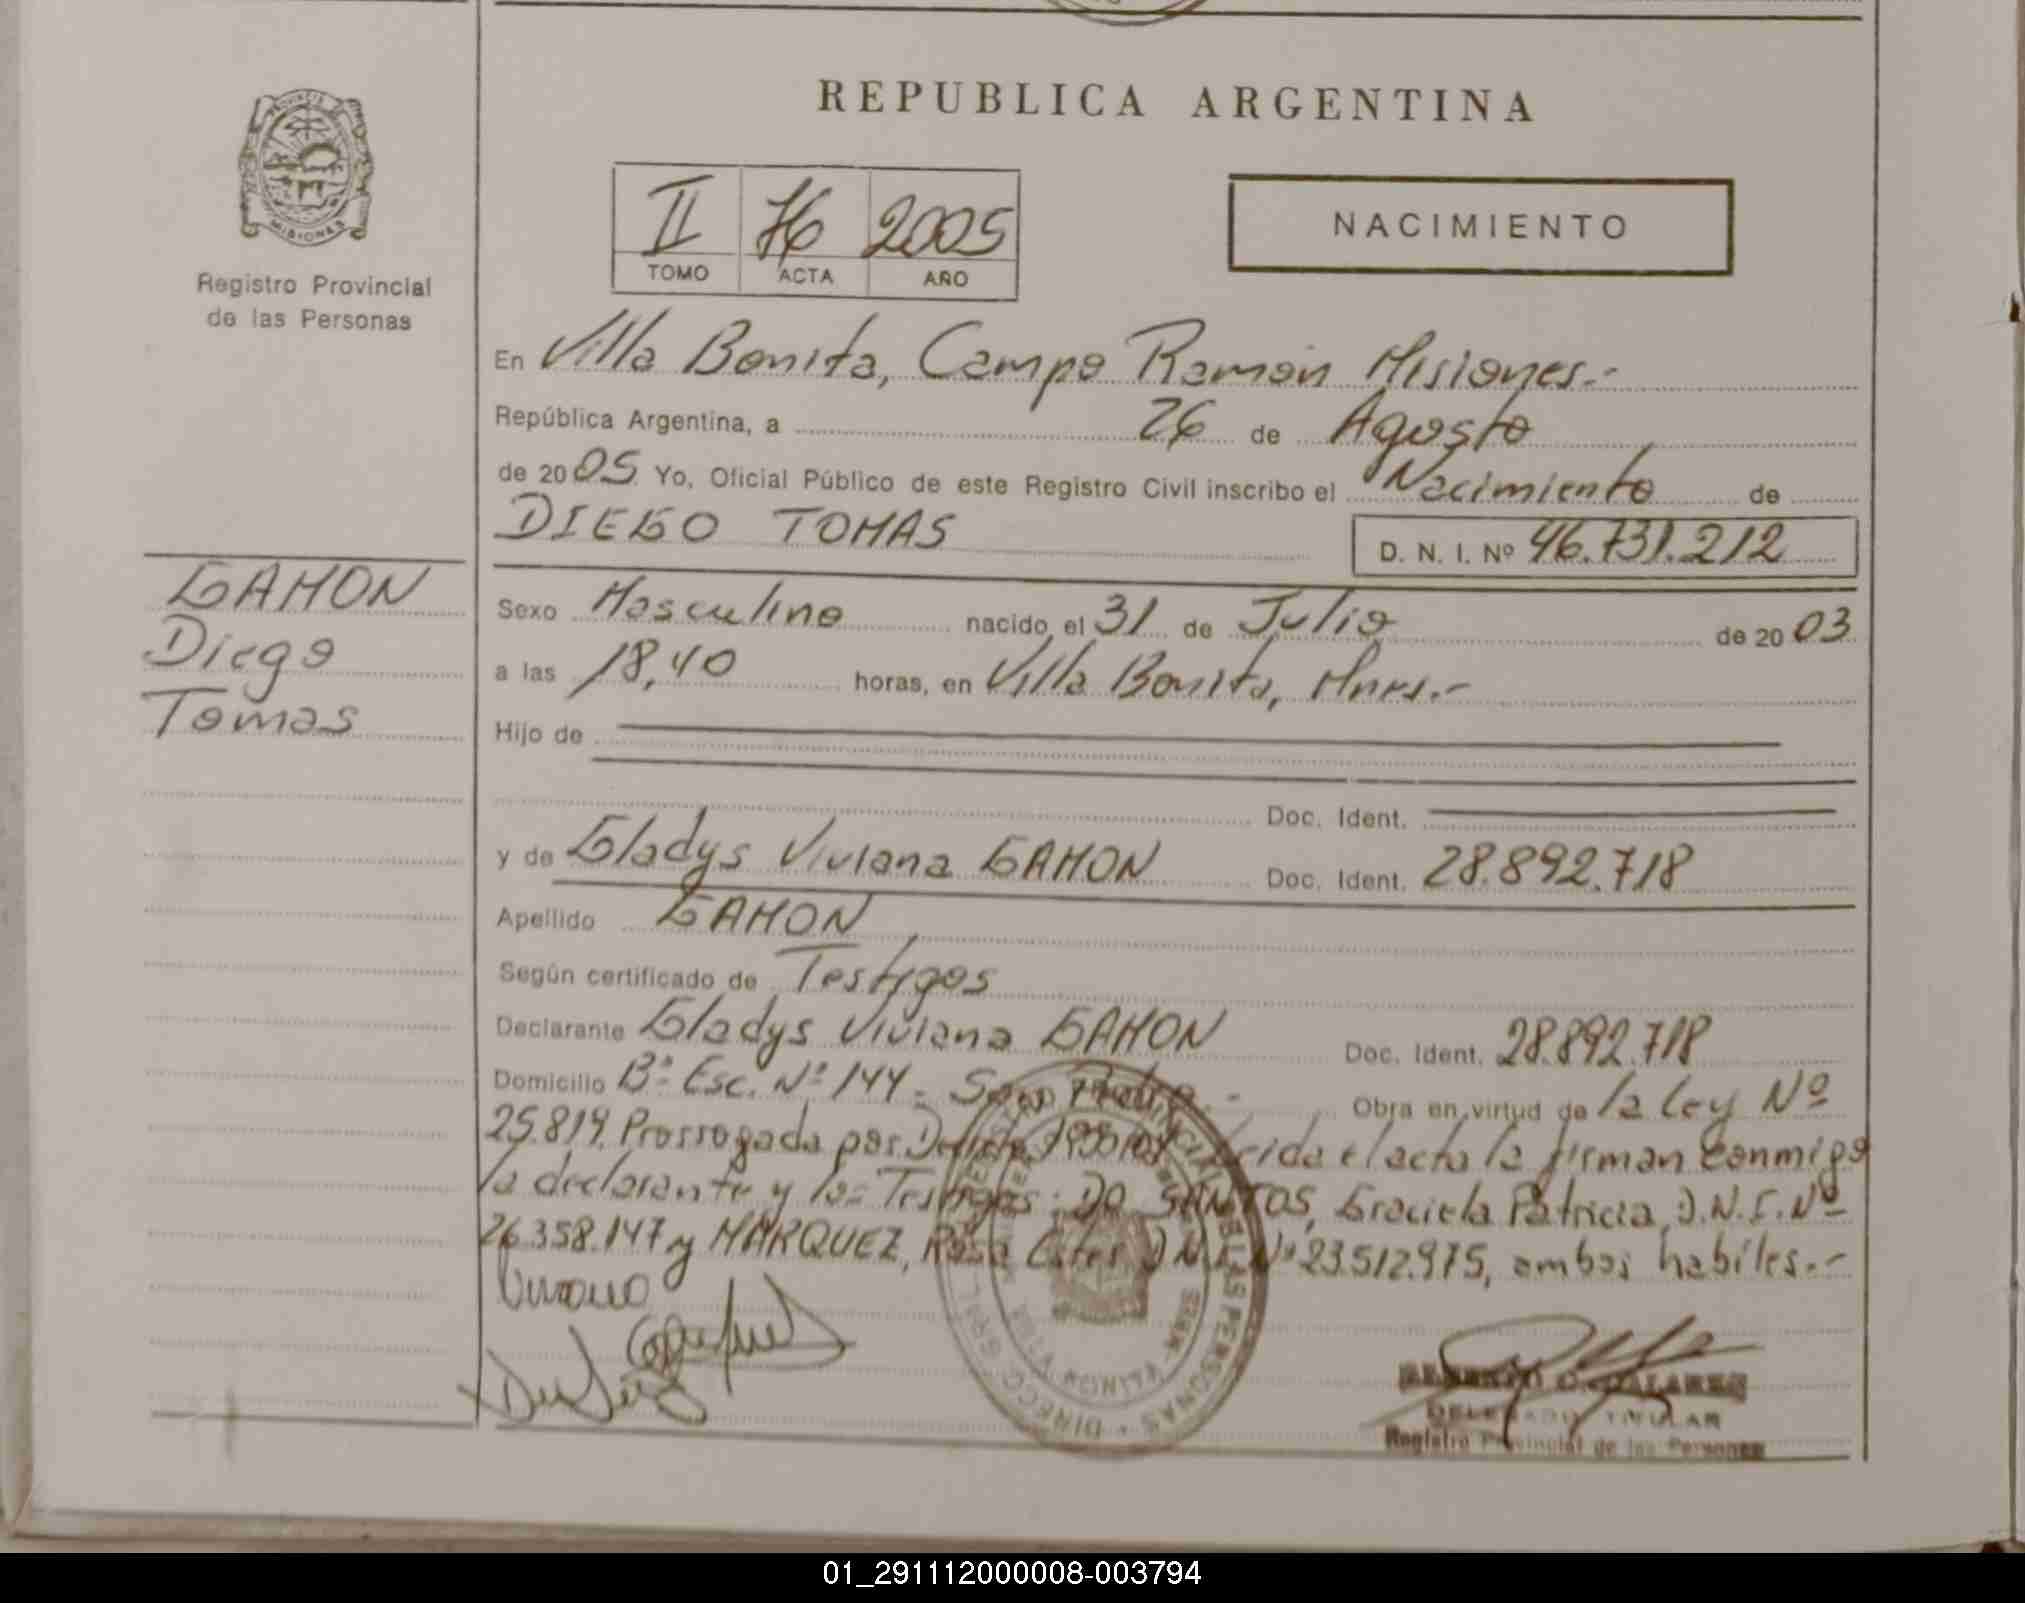 REPUBLICA ARGENTINA
PROVINCIA
MISIONES
Registro Provincial
de las Personas
II 76 2005
TOMO ACTA AÑO
NACIMIENTO
En Villa Bonita, Campo Ramón Misiones.-
República Argentina, a 26 de Agosto
de 2005 Yo, Oficial Público de este Registro Civil inscribo el Nacimiento de
DIEGO TOMAS D. N. I. Nº 46.731.212
GAMON
Diego
Tomas
Sexo Masculino nacido el 31 de Julio de 2003
a las 18,40 horas, en Villa Bonita, Mnes.-
Hijo de
Doc. Ident.
y de Gladys Viviana GAMON Doc. Ident. 28.892.718
Apellido GAMON
Según certificado de Testigos
Declarante Gladys Viviana GAMON Doc. Ident. 28.892.718
Domicilio Bº Esc. Nº 144 - Obra en virtud de la Ley Nº
25.819. Prorrogada por el acta la firman conmigo
la declarante y los Testigos: DO SANTOS, Graciela Patricia, D.N.I. Nº
26.358.147 y MARQUEZ, Rosa Ester D.N.I. Nº 23.512.975, ambos hábiles.-
VILLA BONITA
DELEGADO TITULAR
Registro Provincial de las Personas
01_291112000008-003794